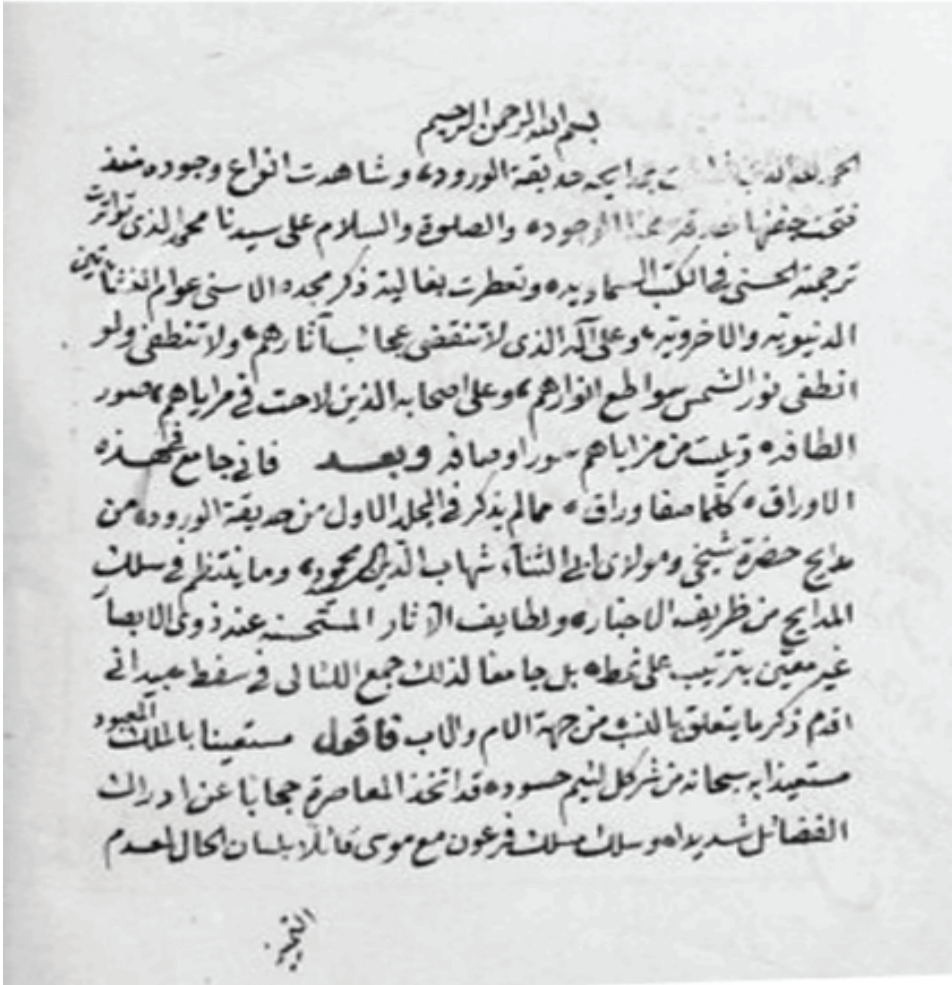 بسم الله الرحمن الرحيم
الحمد لله الذي حديقة الورود، وشاهدت انواع وجوده منذ
فتحت جفنها الوجود، والصلوة والسلام على سيدنا محمد الذي تواترت
ترجمته الحسنى في الكتب السماوية، وتعطرت بغالية ذكر مجده الاسنى عوالم النشأتين
الدنيوية والاخروية، وعلى آله الذي لا تنقضي عجائب آثارهم، ولا تنطفي ولو
انطفى نور الشمس سواطع انوارهم، وعلى اصحابه الذين لاحت في مراياهم، صور
الطافه، وتليت من مزاياهم سور اوصافه وبعد فاني جامع في هذه
الاوراق، كلما صفا وراق، مما لم يذكر في المجلد الاول من حديقة الورود، من
مدايح حضرة شيخي ومولاي ابي الثناء، شهاب الدين محمود، وما ينتظم في سلك
المدايح من ظريف الاخبار، ولطايف الآثار المستحسنه عند ذوي الابصار
غير معتن بترتيب على نمط، بل جامعا لذلك جمع اللئالى في سفط، بيد اني
اقدم ذكر ما يتعلق بالنسب من جهة الام والاب فاقول مستعينا بالملك المعبود
مستعيذا به سبحانه من شر كل لئيم حسود، قد اتخذ المعاصرة حجابا عن ادراك
الفضائل شديدا، وسلك مسلك فرعون مع موسى قائلا بلسان الحال لمعدم